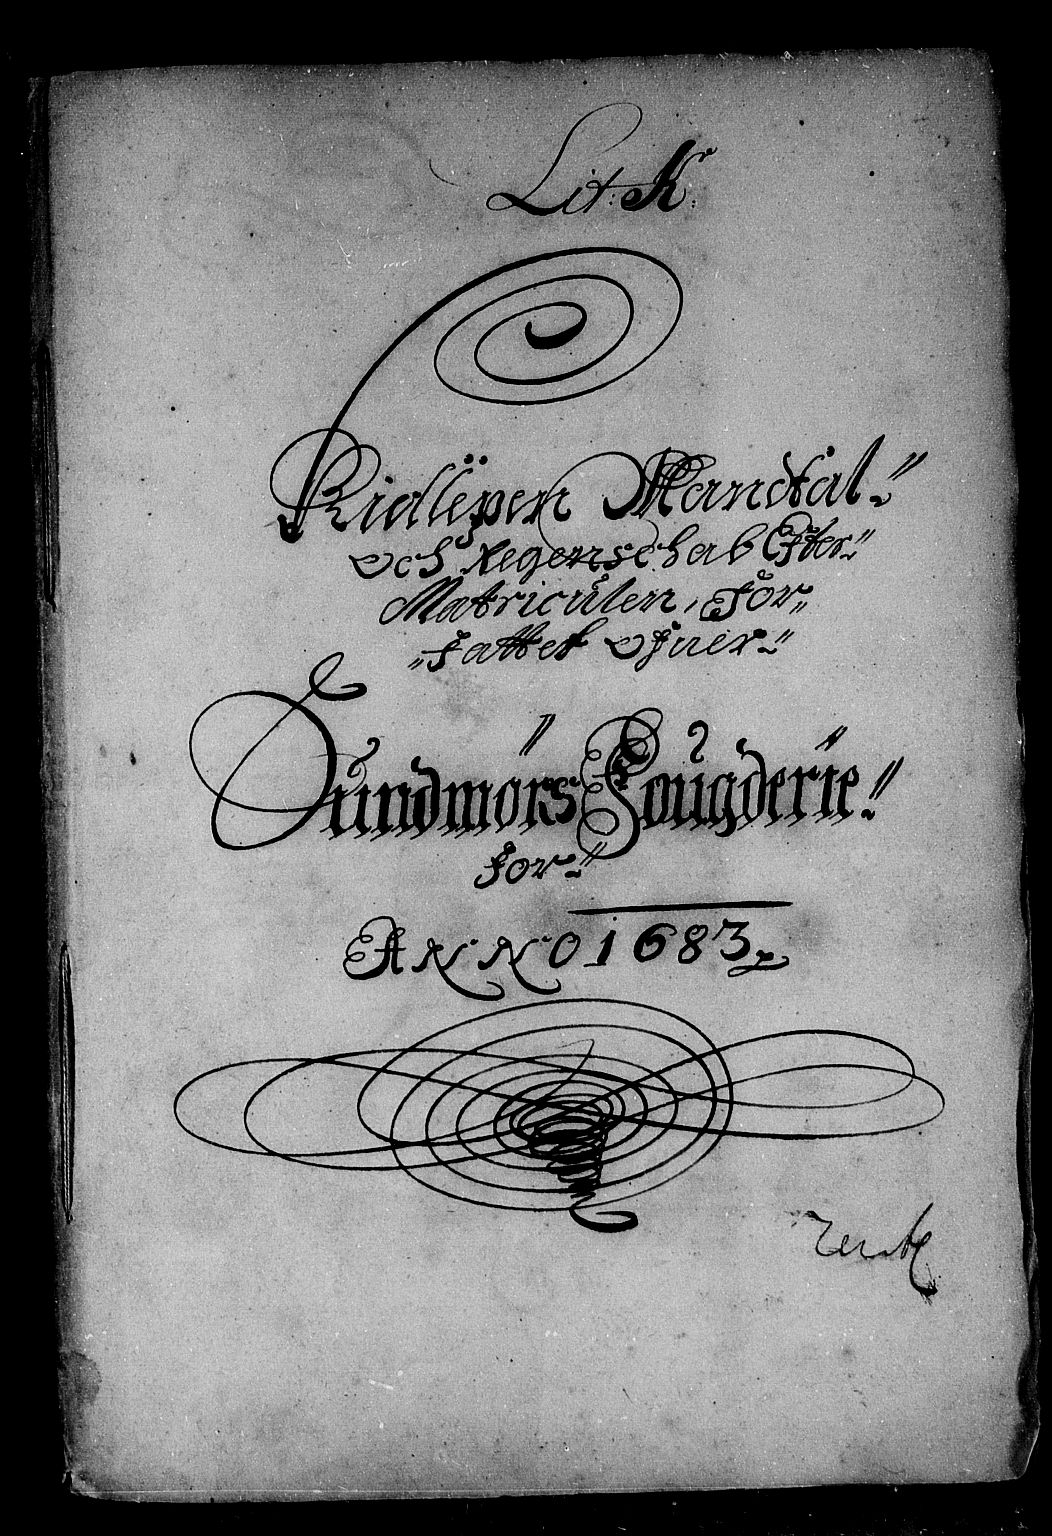 Lit: K:
Kiellepen Mandtal
och Regenschab Efter
Matriculen, For
fattet ofuer
Sundmörs Fougderie
for
ANNO 1683